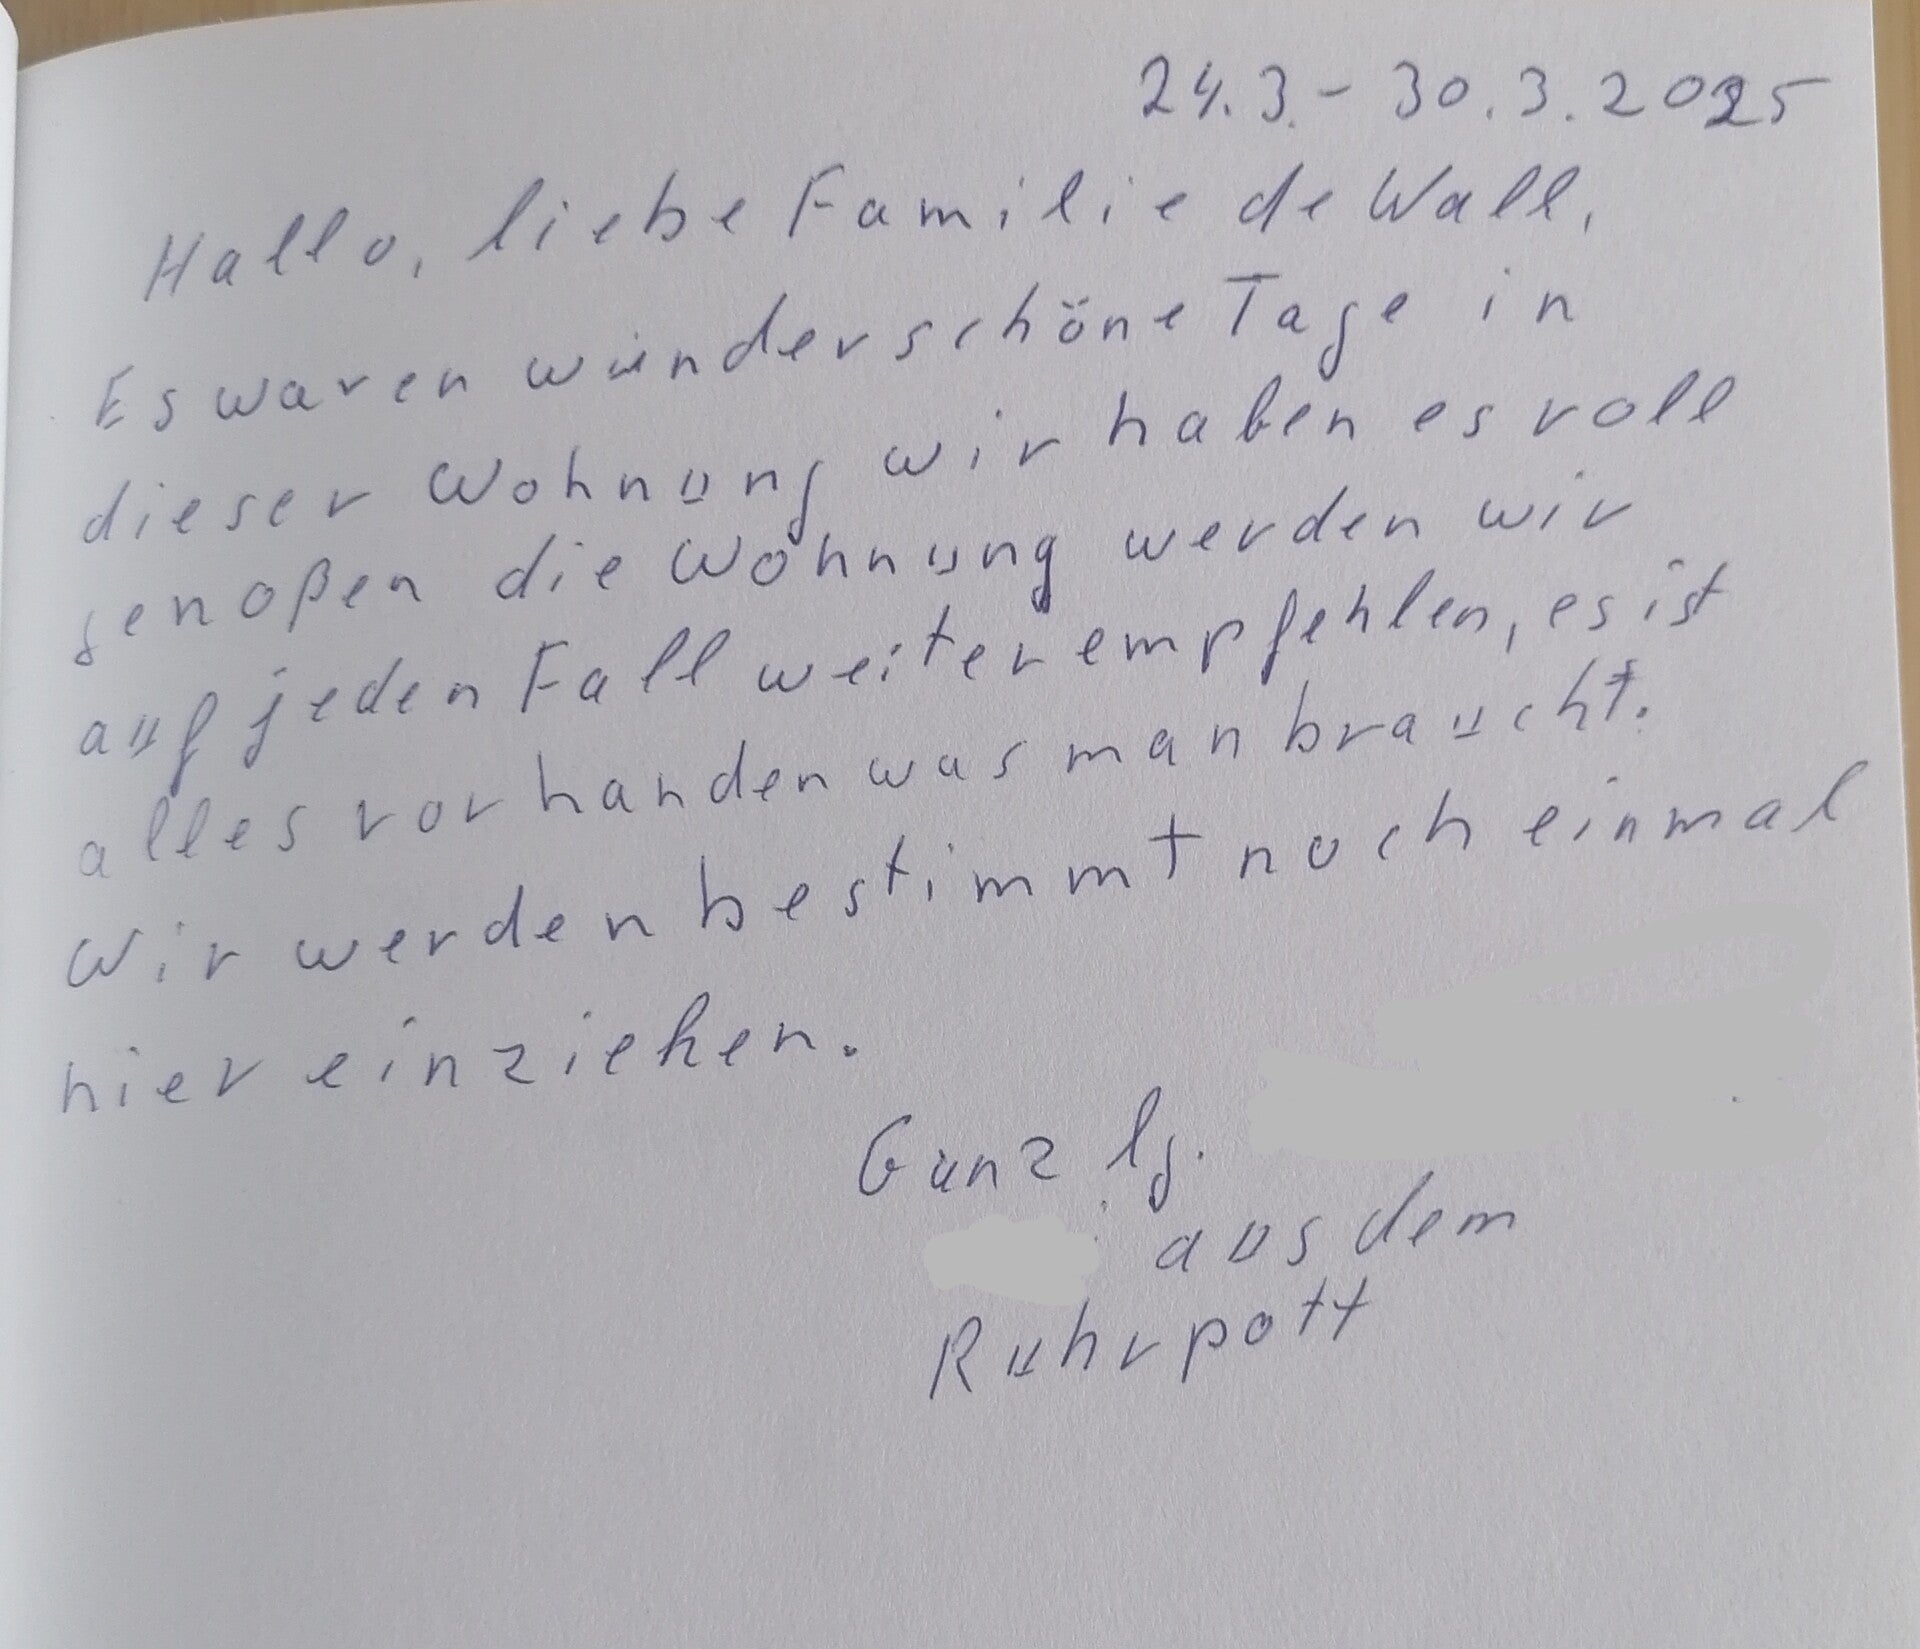 24.3.- 30.3.2025
Hallo, liebe Familie de Wall,
Es waren wunderschöne Tage in
dieser Wohnung wir haben es voll
genoßen die Wohnung werden wir
auf jeden Fall weiterempfehlen, es ist
alles vorhanden was man braucht.
Wir werden bestimmt noch einmal
hier einziehen.
Ganz lg.
aus dem
Ruhrpott